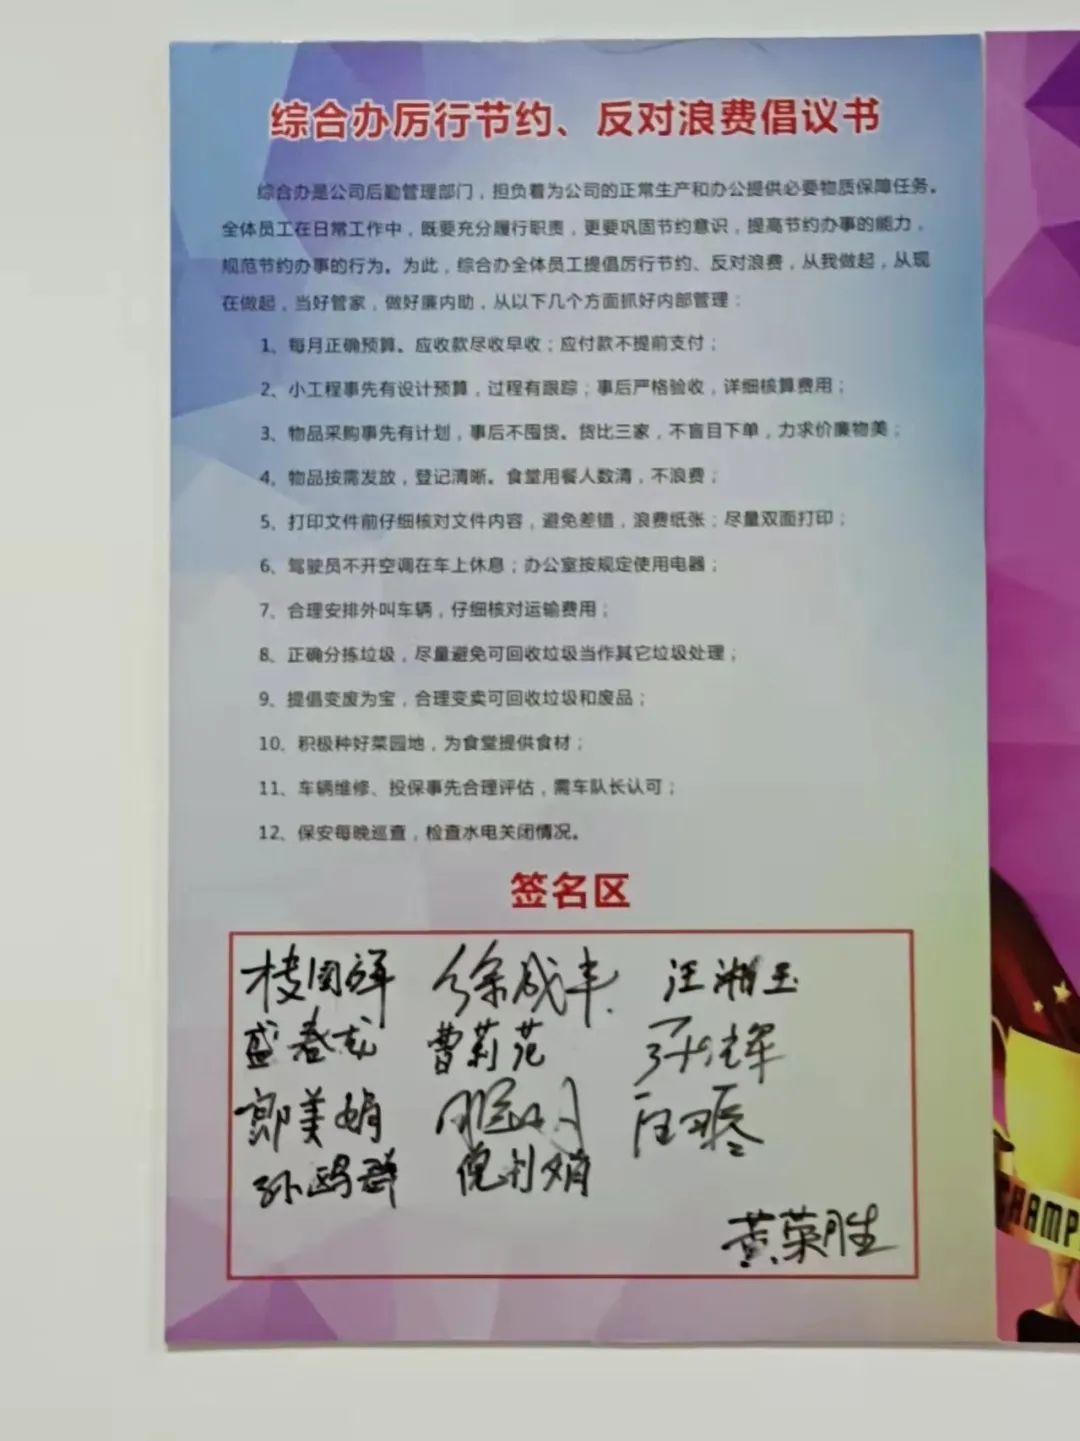 综合办厉行节约、反对浪费倡议书
综合办是公司后勤管理部门，担负着为公司的正常生产和办公提供必要物质保障任务。
全体员工在日常工作中，既要充分履行职责，更要巩固节约意识，提高节约办事的能力，
规范节约办事的行为。为此，综合办全体员工提倡厉行节约、反对浪费，从我做起，从现
在做起，当好管家，做好廉内助，从以下几个方面抓好内部管理：
1、每月正确预算。应收款尽收早收；应付款不提前支付；
2、小工程事先有设计预算，过程有跟踪；事后严格验收，详细核算费用；
3、物品采购事先有计划，事后不囤货。货比三家，不盲目下单，力求价廉物美；
4、物品按需发放，登记清晰。食堂用餐人数清，不浪费；
5、打印文件前仔细核对文件内容，避免差错，浪费纸张；尽量双面打印；
6、驾驶员不开空调在车上休息；办公室按规定使用电器；
7、合理安排外叫车辆，仔细核对运输费用；
8、正确分拣垃圾，尽量避免可回收垃圾当作其它垃圾处理；
9、提倡变废为宝，合理变卖可回收垃圾和废品；
10、积极种好菜园地，为食堂提供食材；
11、车辆维修、投保事先合理评估，需车队长认可；
12、保安每晚巡查，检查水电关闭情况。
签名区
徐成丰 汪湘玉
盛春龙 曹莉范
郎美娟
孙鸥群 倪利娟
黄荣胜
CHAMP